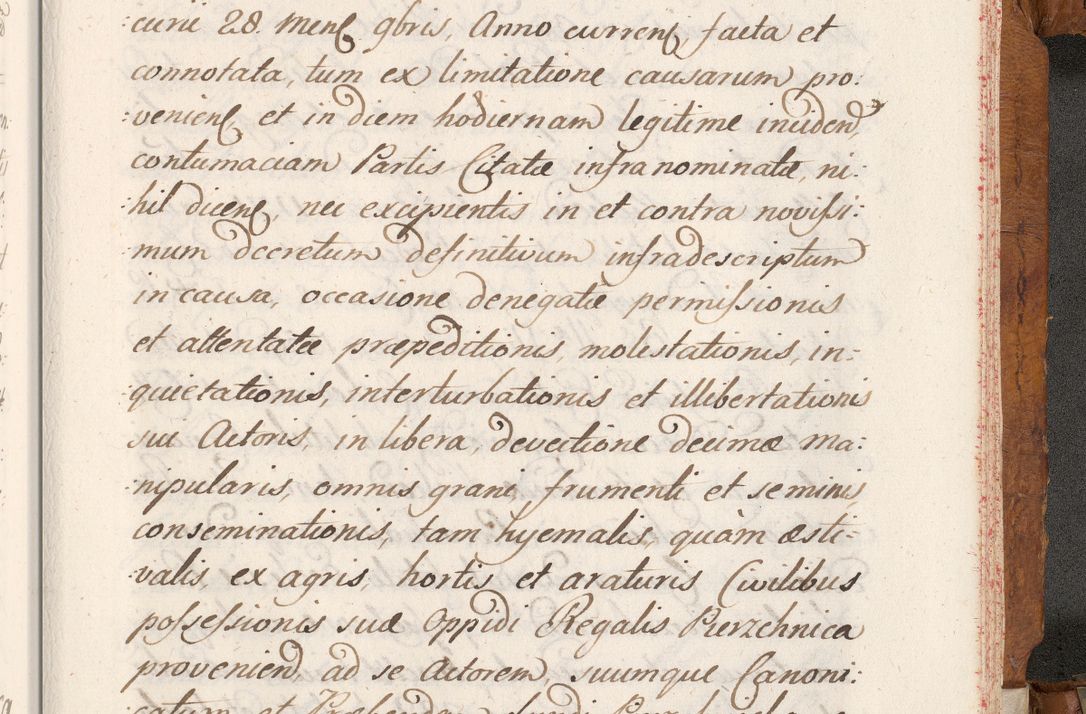 curiè 28. Menſ 9bris, Anno currenſ facta et
connotata, tum ex limitatione causarum pro:
:venienſ et in diem hodiernam legitime inciden,
contumaciam Partis Citatæ infranominatæ, ni:
:hil dicenſ, nec excipientis in et contra noviſsi:
mum decretum definitivum infradescriptum
in causa, occasione denegatæ permiſsionis
et attentatæ præpeditionis, molestationis, in:
:quietationis, interturbationis et illibertationis
sui Actoris, in libera, devectione decimæ ma:
:nipularis, omnis grani, frumenti et seminis,
conseminationis, tam hyemalis, quàm æsti:
:valis, ex agris, hortis et araturis Civilibus
poſseſsionis suæ Oppidi Regalis Pierzchnica
provenien, ad se Actorem, suumque Canoni: